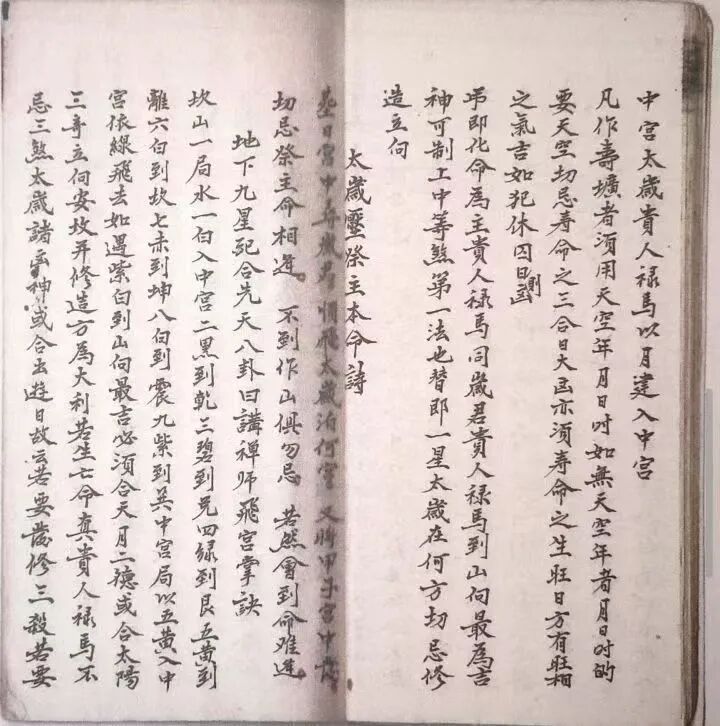 中宮太歲貴人祿馬以月建入中宮
凡作壽壙者須用天空年月日时如無天空年者月日时的
要天空切忌壽命之三合日大凶亦須壽命之生旺日方有旺相
之氣吉如犯休囚日則凶
弔即化命為主貴人祿馬同歲君貴人祿馬到山向最為吉
神可制上中等煞第一法也替即一星太歲在何方切忌修
造立向
太歲壓祭主本命詩
日宮中 太歲泊何宮 又將甲子宮中
切忌祭主命相逢 不到作山俱勿忌 若然會到命难逃
地下九星死合先天八卦曰講禅师飛宮掌訣
坎山一局水一白入中宮二黑到乾三碧到兌四绿到艮五黄到
離六白到坎七赤到坤八白到震九紫到巽中宮局以五黄入中
宮依線飛去如遇紫白到山向最吉必须合天月二德或合太陽
三奇立向安坟并修造方為大利若生七命真貴人祿馬不
忌三煞太歲諸凶神或合出遊日故云若要發修三殺若要